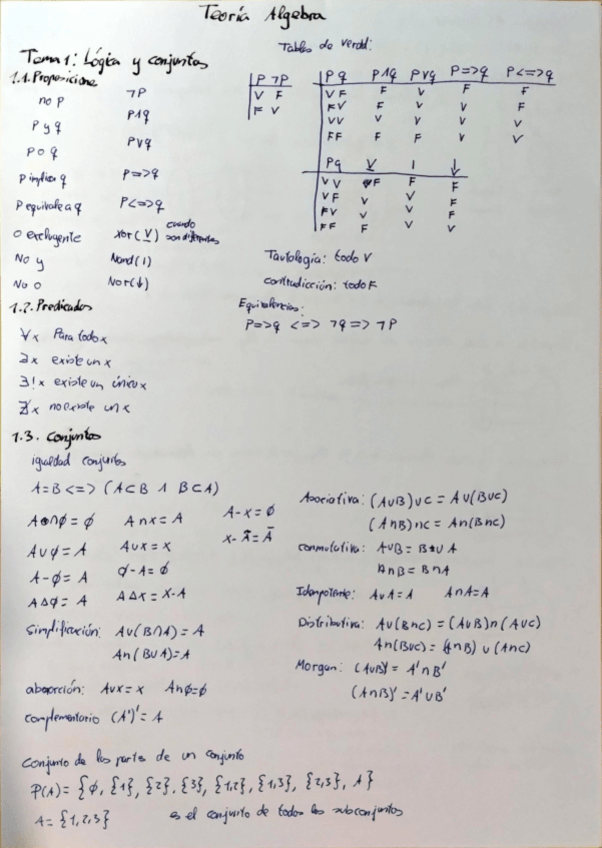 Teoría Algebra
Tema 1: Lógica y conjuntos
1.1. Proposicione
no p ¬P
p y q P∧q
p o q P∨q
p implica q P=>q
p equivale a q P<=>q
o excluyente xor(⊻) cuando son diferentes
No y Nand(|)
No o Nor(↓)
Tablas de verdd:
P ¬P
V F
F V
P q P∧q P∨q P=>q P<=>q
V F F V F F
F V F V V F
V V V V V V
F F F F V V
P q ⊻ | ↓
V V F F F
V F V V F
F V V V F
F F F V V
Tautología: todo V
contradicción: todo F
Equivalencias:
P=>q <=> ¬q=>¬P
1.2. Predicados
∀x Para todo x
∃x existe un x
∃!x existe un único x
∄x no existe un x
1.3. Conjuntos
igualdad conjuntos
A=B<=> (A⊂B ∧ B⊂A)
A∩∅=∅ A∩x=A A-x=∅
A∪∅=A A∪x=x x-Ā=Ā
A-∅=A ∅-A=∅
A∆∅=A A∆x=X-A
Simplificación: A∪(B∩A)=A
A∩(B∪A)=A
absorción: A∪x=x A∩∅=∅
complementario (A')'=A
Asociativa: (A∪B)∪C=A∪(B∪C)
(A∩B)∩C=A∩(B∩C)
conmutativa: A∪B=B∪A
A∩B=B∩A
Idempotente: A∪A=A A∩A=A
Distributiva: A∪(B∩C)=(A∪B)∩(A∪C)
A∩(B∪C)=(A∩B)∪(A∩C)
Morgan: (A∪B)'=A'∩B'
(A∩B)'=A'∪B'
Conjunto de las partes de un conjunto
P(A)={∅, {1}, {2}, {3}, {1,2}, {1,3}, {2,3}, A}
A={1,2,3} es el conjunto de todos los subconjuntos